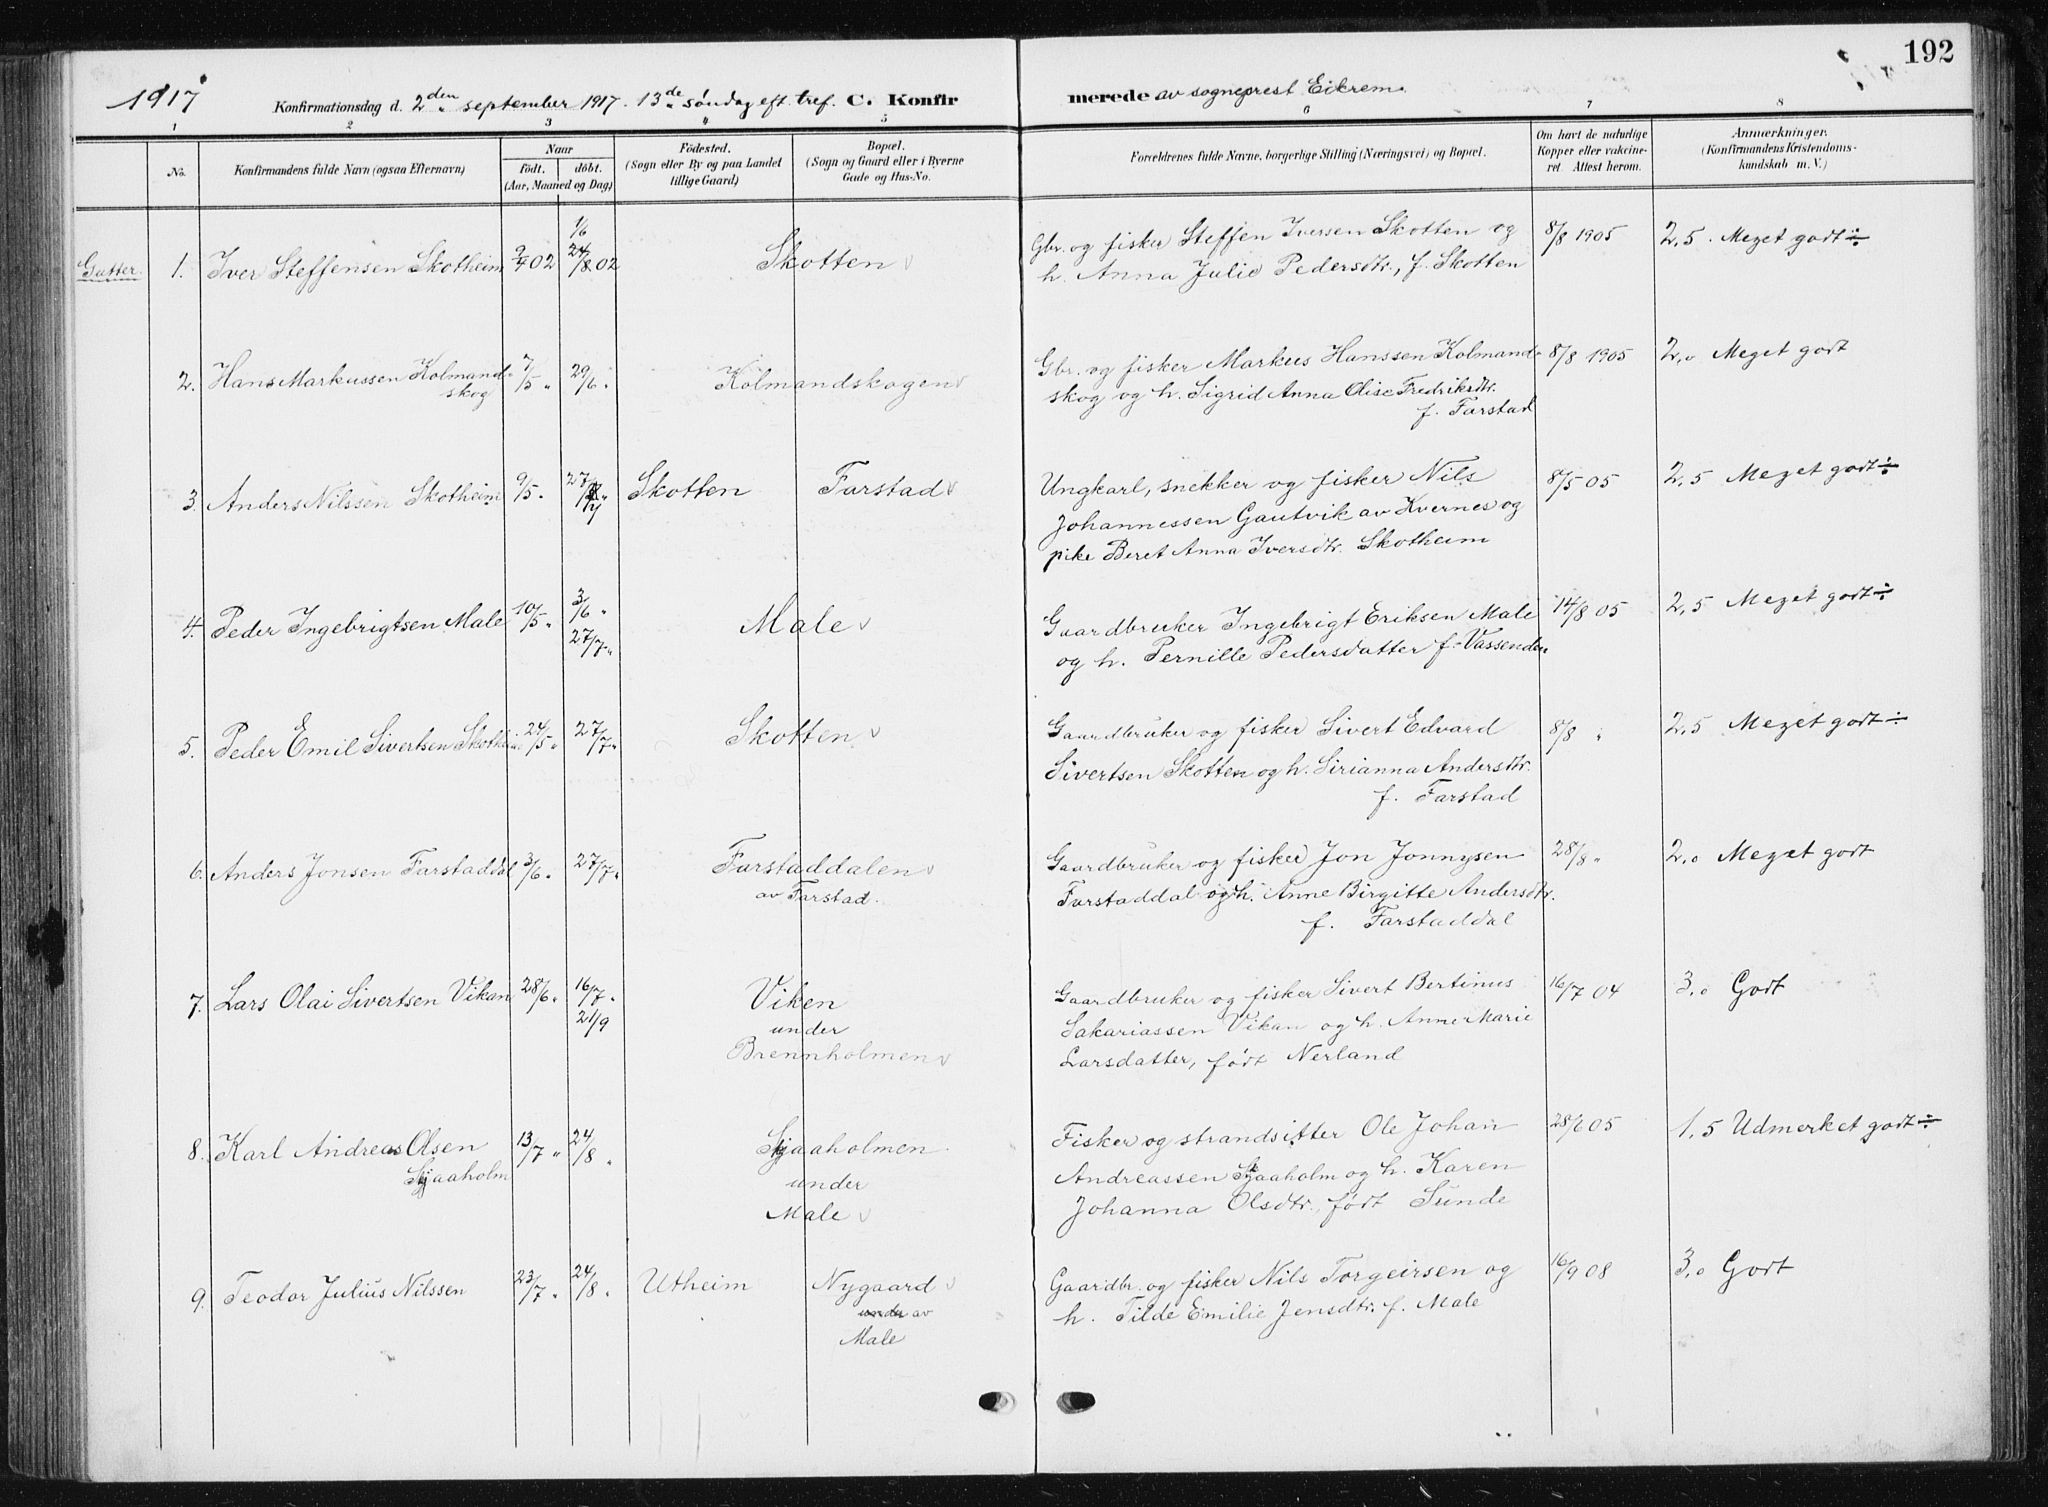 192
1917
Konfirmationsdag d. 2den september 1917. 13de søndag eft. tref. C. Konfirmerede av sogneprest Eikrem.
1 2 3 4 5 6 7 8
No. Konfirmandens fulde Navn (ogsaa Efternavn) Naar født. døbt. (Aar, Maaned og Dag) Fødested. (Sogn eller By og paa Landet tillige Gaard) Bopæl. (Sogn og Gaard eller i Byerne Gade og Hus-No. Forældrenes fulde Navne, borgerlige Stilling (Næringsvei) og Bopæl. Om havt de naturlige Kopper eller vakcineret. Attest herom. Anmærkninger. (Konfirmandens Kristendomskundskab m. V.)
Gutter.
1. Iver Steffensen Skotheim 9/4 02 1/6 24/8 02 Skotten
Gbr. og fisker Steffen Iversen Skotten og 8/8 1905 2,5. Meget godt ÷
h. Anna Julie Pedersdtr., f. Skotten
2. Hans Markussen Kolmandskog 7/5 " 29/6 " Kolmandskogen
Gbr. og fisker Markus Hanssen Kolmand- 8/8 1905 2,0 Meget godt
skog og h. Sigrid Anna Olise Fredriksdtr.
f. Farstad
3. Anders Nilssen Skotheim 9/5 " 27/7 " Skotten Farstad
Ungkarl, snekker og fisker Nils 8/5 05 2,5 Meget godt ÷
Johannessen Gautvik av Kvernes og
pike Beret Anna Iversdtr. Skotheim
4. Peder Ingebrigtsen Male 10/5 " 3/6 " 27/7 " Male
Gaardbruker Ingebrigt Eriksen Male 14/8 05 2,5 Meget godt ÷
og h. Pernille Pedersdatter f. Vassenden
5. Peder Emil Sivertsen Skotheim 24/5 " 27/7 " Skotten
Gaardbruker og fisker Sivert Edvard 8/8 " 2,5 Meget godt ÷
Sivertsen Skotten og h. Sirianna Andersdtr.
f. Farstad
6. Anders Jonsen Farstaddal 3/6 " 27/7 " Farstaddalen
av Farstad.
Gaardbruker og fisker Jon Jonnysen 28/8 " 2,0 Meget godt
Farstaddal og h. Anne Birgitte Andersdtr.
f. Farstaddal
7. Lars Olai Sivertsen Vikan 28/6 " 16/7 " 21/9 Viken
under
Brennholmen
Gaardbruker og fisker Sivert Bertinus 16/7 04 3,0 Godt
Sakariassen Vikan og h. Anne Marie
Larsdatter, født Nerland
8. Karl Andreas Olsen 13/7 " 24/8 " Skjaaholmen
Skjaaholm under
Male
Fisker og strandsitter Ole Johan 28/6 05 1,5 Udmerket godt ÷
Andreassen Skjaaholm og h. Karen
Johanna Olsdtr., født Sunde
9. Teodor Julius Nilssen 23/7 " 24/8 " Utheim Nygaard
under av
Male
Gaardbr. og fisker Nils Torgeirsen og 16/9 08 3,0 Godt
h. Tilde Emilie Jensdtr. f. Male